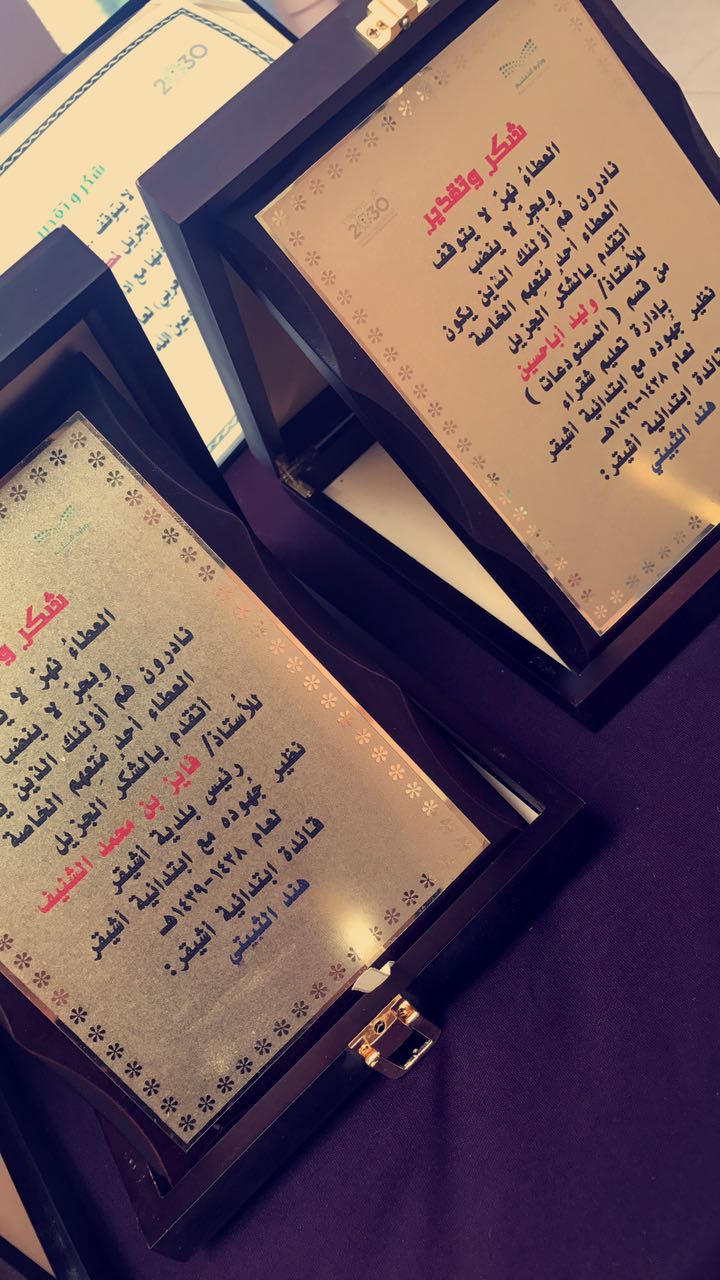 وزارة التعليم
2030
شكر وتقدير
العطاءُ نهرٌ لا يتوقف
وبحرٌ لا ينضب
نادرون هُم أولئك الذين يكون
العطاء أحد سُماتِهم الخاصة
أتقدم بالشكر الجزيل
للأستاذ/ وليد أباحسين
من قسم ( المستودعات )
بإدارة تعليم شقراء
نظير جهوده مع ابتدائية أشيقر
لعام ١٤٣٨-١٤٣٩هـ
قائدة ابتدائية أشيقر:
هند الثبيتي
وزارة التعليم
شكر و
العطاءُ نهرٌ لا
وبحرٌ لا ينضب
نادرون هُم أولئك الذين
العطاء أحد سُماتِهم الخاصة
أتقدم بالشكر الجزيل
للأستاذ/ فايز بن محمد الشنيف
رئيس بلدية أشيقر
نظير جهوده مع ابتدائية أشيقر
لعام ١٤٣٨-١٤٣٩هـ
قائدة ابتدائية أشيقر:
هند الثبيتي
2030
شكر وتقدير
لا يتوقف